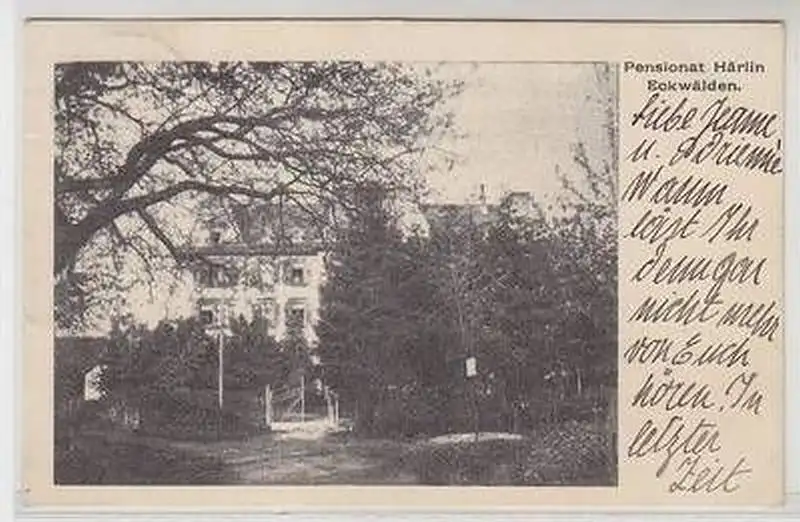 Pensionat Härlin
Eckwälden.
Liebe Jeanne
u. Adrienne
Wann
läßt Ihr
denn gar
nicht mehr
von Euch
hören. In
letzter
Zeit